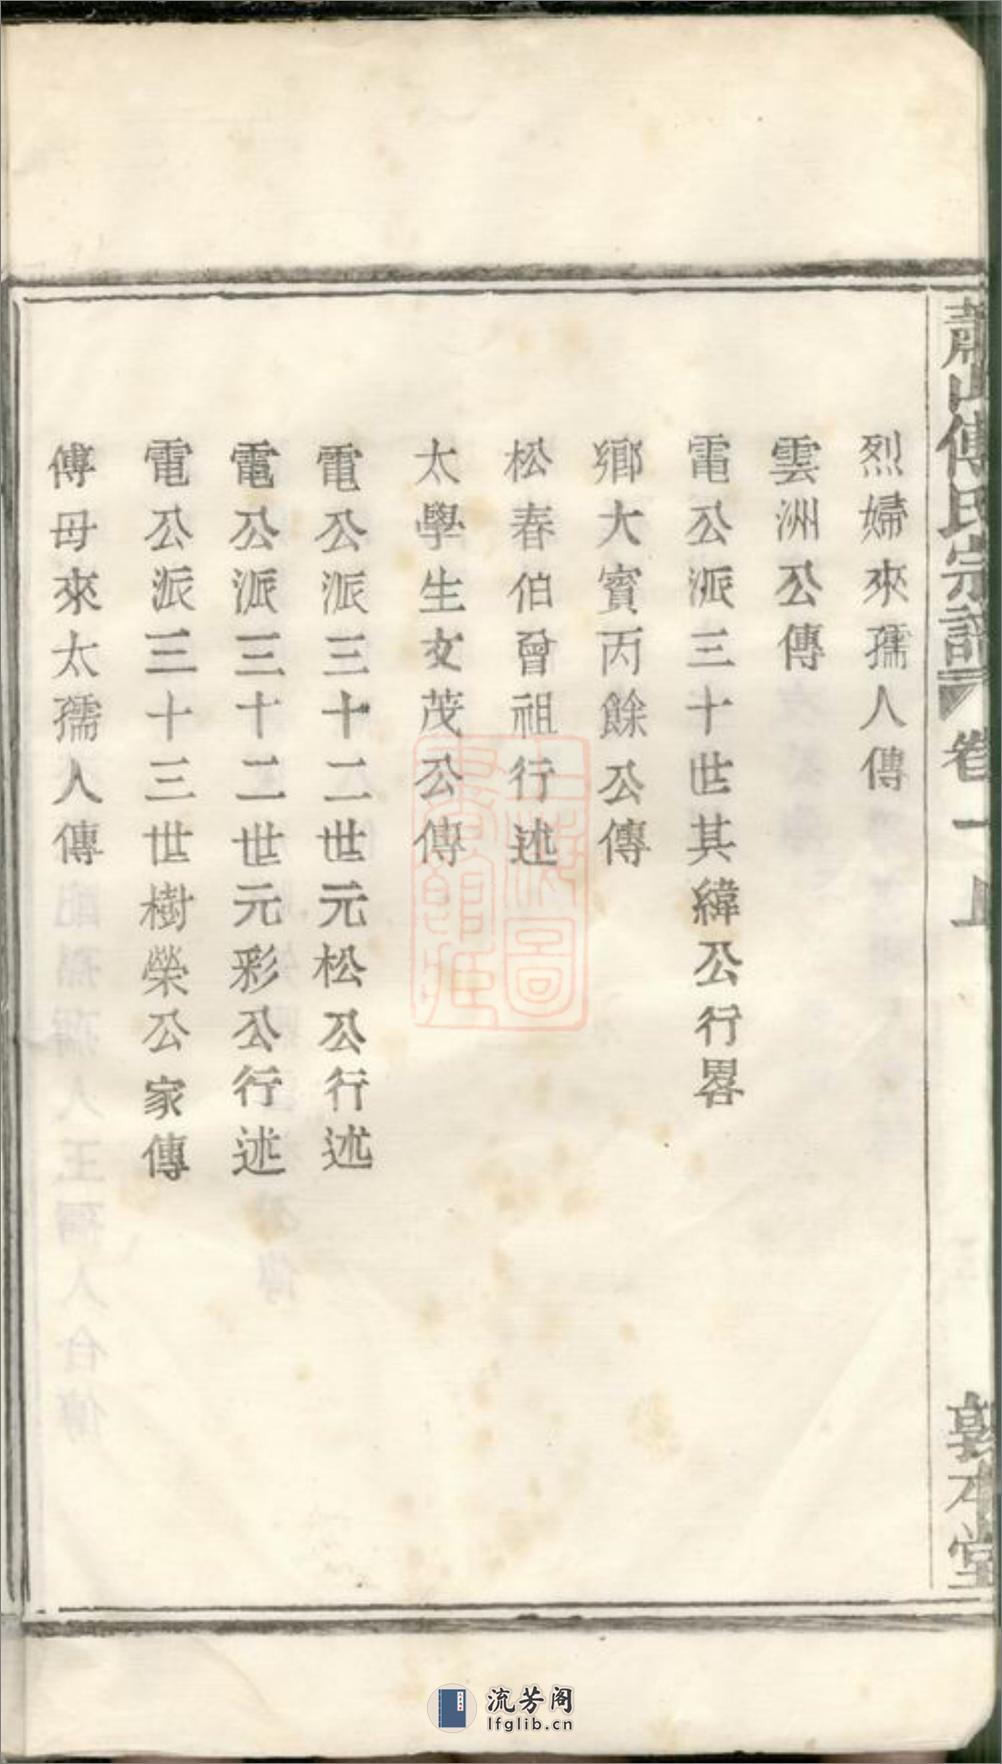 蕭山傅氏宗譜 卷一上
敦本堂
烈婦來孺人傳
雲洲公傳
電公派三十世其緯公行畧
鄉大賓丙餘公傳
松春伯曾祖行述
太學生文茂公傳
電公派三十二世元松公行述
電公派三十二世元彩公行述
電公派三十三世樹榮公家傳
傅母來太孺人傳
上海圖
書館藏
流芳阁
lfglib.cn